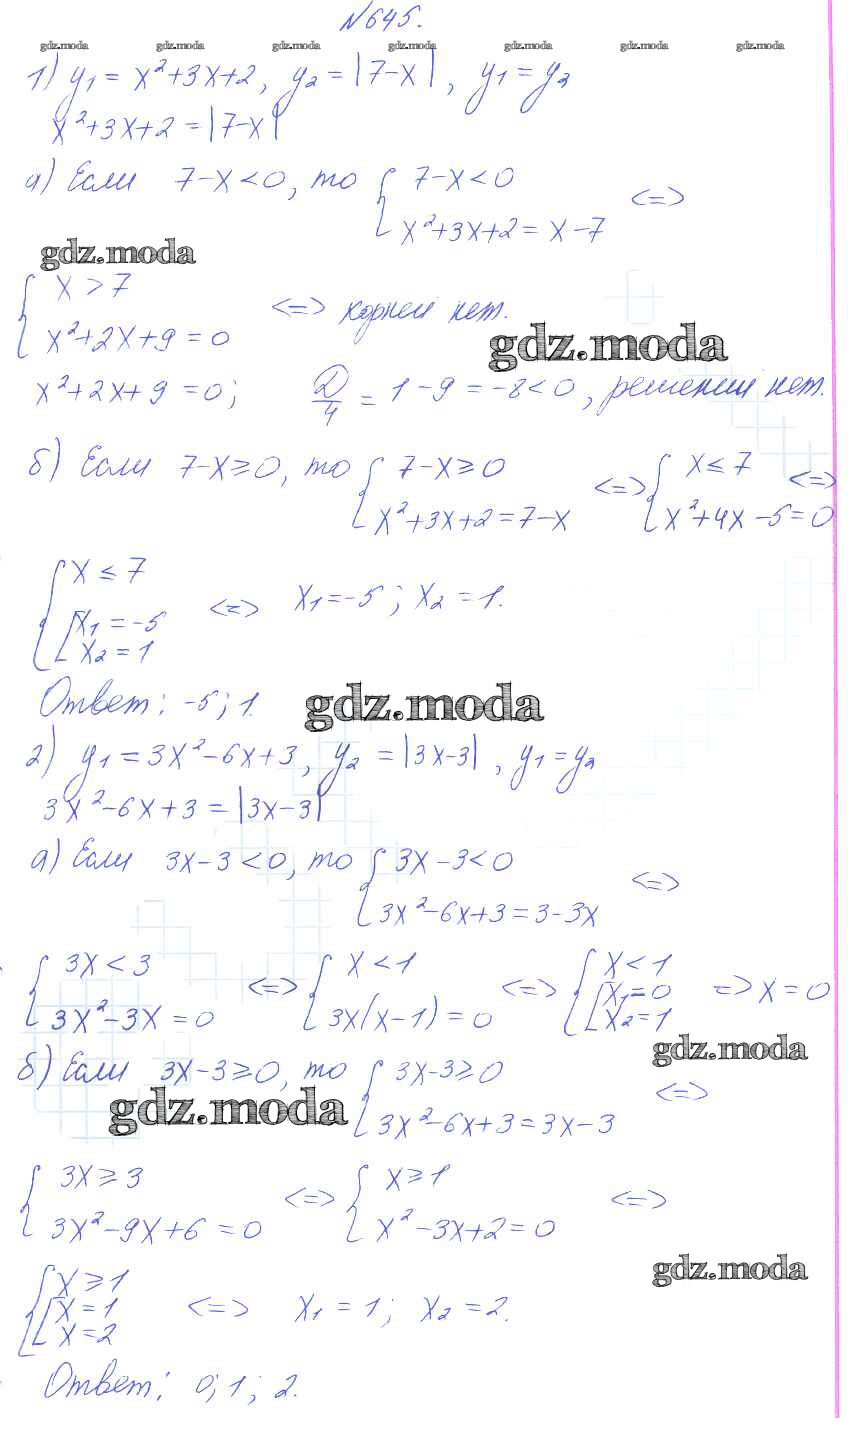 №645.
gdz.moda gdz.moda gdz.moda gdz.moda gdz.moda gdz.moda gdz.moda
1) y₁ = x²+3x+2, y₂ = |7-x|, y₁ = y₂
x²+3x+2 = |7-x|
а) Если 7-x<0, то { 7-x<0
x²+3x+2 = x-7 <=>
gdz.moda
{ x > 7
x²+2x+9 = 0 <=> корней нет.
gdz.moda
x²+2x+9 = 0; D/4 = 1-9 = -8<0, решений нет.
б) Если 7-x≥0, то { 7-x≥0
x²+3x+2 = 7-x <=> { x≤7
x²+4x-5=0 <=>
{ x ≤ 7
[ x₁ = -5
x₂ = 1 <=> x₁=-5; x₂ = 1.
Ответ: -5; 1.
gdz.moda
2) y₁ = 3x²-6x+3, y₂ = |3x-3|, y₁=y₂
3x²-6x+3 = |3x-3|
а) Если 3x-3<0, то { 3x-3<0
3x²-6x+3 = 3-3x <=>
{ 3x < 3
3x²-3x = 0 <=> { x < 1
3x(x-1) = 0 <=> { x<1
[ x₁=0
x₂=1 => x=0
gdz.moda
б) Если 3x-3≥0, то { 3x-3≥0
3x²-6x+3 = 3x-3 <=>
gdz.moda
{ 3x ≥ 3
3x²-9x+6 = 0 <=> { x≥1
x²-3x+2 = 0 <=>
gdz.moda
{ x≥1
[ x = 1
x=2 <=> x₁ = 1; x₂ = 2.
Ответ: 0; 1; 2.